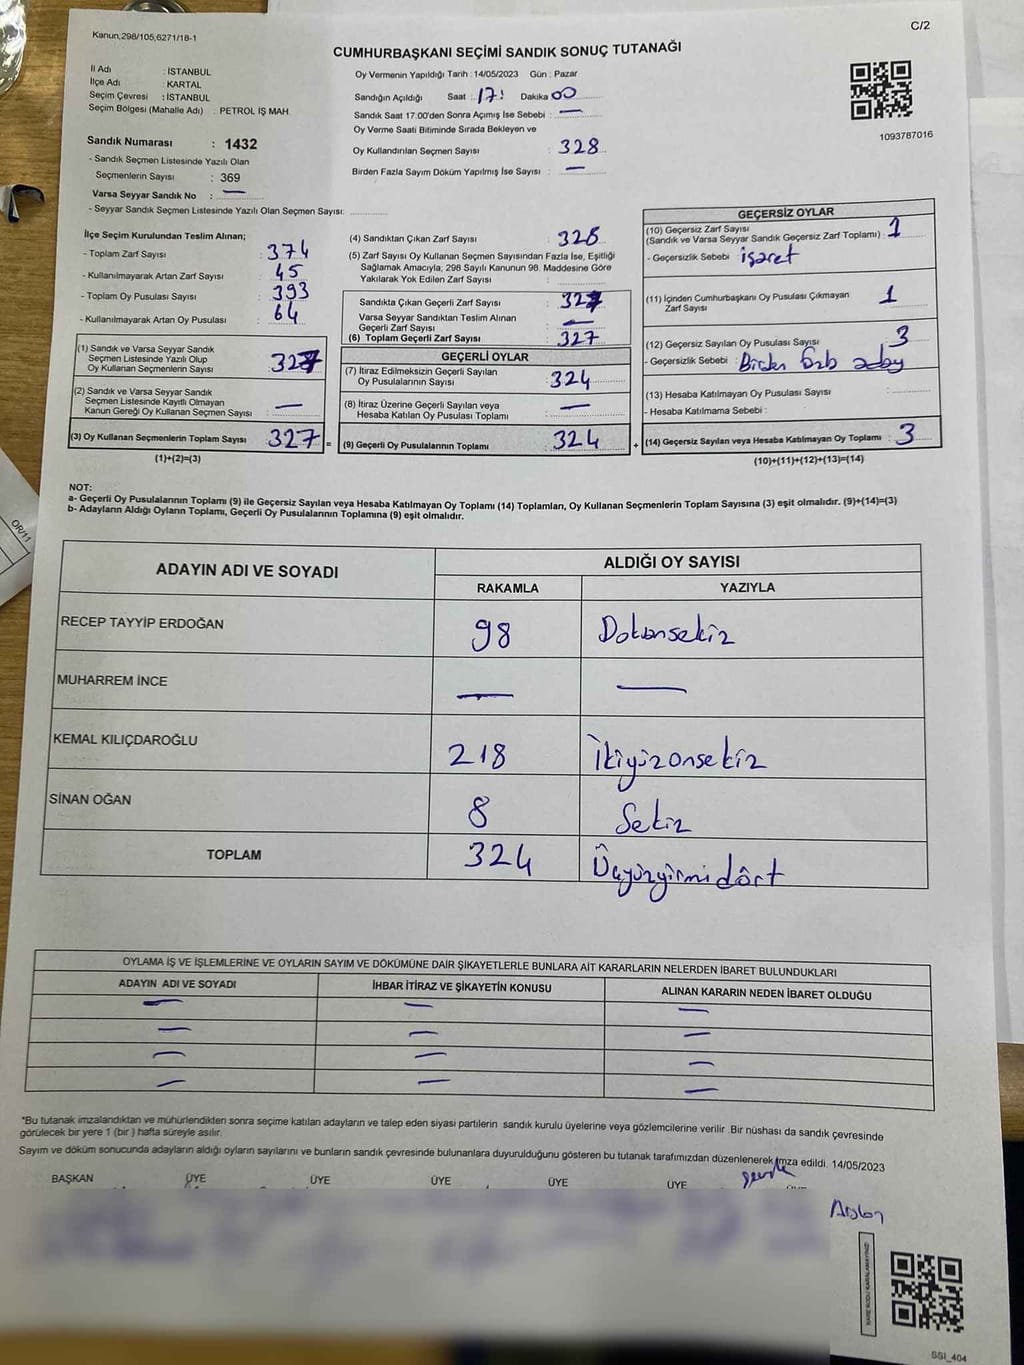 C/2
Kanun,298/105,6271/18-1
CUMHURBAŞKANI SEÇİMİ SANDIK SONUÇ TUTANAĞI
İl Adı : İSTANBUL
İlçe Adı : KARTAL
Seçim Çevresi : İSTANBUL
Seçim Bölgesi (Mahalle Adı) : PETROL İŞ MAH.
Oy Vermenin Yapıldığı Tarih : 14/05/2023 Gün : Pazar
Sandığın Açıldığı Saat : 17: Dakika 00
Sandık Saat 17:00'den Sonra Açımış İse Sebebi : —
Oy Verme Saati Bitiminde Sırada Bekleyen ve
Oy Kullandırılan Seçmen Sayısı : 328
Birden Fazla Sayım Döküm Yapılmış İse Sayısı : —
1093787016
Sandık Numarası : 1432
- Sandık Seçmen Listesinde Yazılı Olan
Seçmenlerin Sayısı : 369
Varsa Seyyar Sandık No : —
- Seyyar Sandık Seçmen Listesinde Yazılı Olan Seçmen Sayısı:
İlçe Seçim Kurulundan Teslim Alınan;
- Toplam Zarf Sayısı : 374
- Kullanılmayarak Artan Zarf Sayısı : 45
- Toplam Oy Pusulası Sayısı : 393
- Kullanılmayarak Artan Oy Pusulası : 64
(1) Sandık ve Varsa Seyyar Sandık
Seçmen Listesinde Yazılı Olup
Oy Kullanan Seçmenlerin Sayısı : 327
(2) Sandık ve Varsa Seyyar Sandık
Seçmen Listesinde Kayıtlı Olmayan
Kanun Gereği Oy Kullanan Seçmen Sayısı : —
(3) Oy Kullanan Seçmenlerin Toplam Sayısı : 327
(1)+(2)=(3)
(4) Sandıktan Çıkan Zarf Sayısı : 328
(5) Zarf Sayısı Oy Kullanan Seçmen Sayısından Fazla İse, Eşitliği
Sağlamak Amacıyla, 298 Sayılı Kanunun 98. Maddesine Göre
Yakılarak Yok Edilen Zarf Sayısı :
Sandıkta Çıkan Geçerli Zarf Sayısı : 327
Varsa Seyyar Sandıktan Teslim Alınan
Geçerli Zarf Sayısı : —
(6) Toplam Geçerli Zarf Sayısı : 327
GEÇERLİ OYLAR
(7) İtiraz Edilmeksizin Geçerli Sayılan
Oy Pusulalarının Sayısı : 324
(8) İtiraz Üzerine Geçerli Sayılan veya
Hesaba Katılan Oy Pusulası Toplamı : —
= (9) Geçerli Oy Pusulalarının Toplamı : 324
GEÇERSİZ OYLAR
(10) Geçersiz Zarf Sayısı
(Sandık ve Varsa Seyyar Sandık Geçersiz Zarf Toplamı) : 1
- Geçersizlik Sebebi : işaret
(11) İçinden Cumhurbaşkanı Oy Pusulası Çıkmayan
Zarf Sayısı 1
(12) Geçersiz Sayılan Oy Pusulası Sayısı : 3
- Geçersizlik Sebebi : Birden fazla aday
(13) Hesaba Katılmayan Oy Pusulası Sayısı :
- Hesaba Katılmama Sebebi :
+ (14) Geçersiz Sayılan veya Hesaba Katılmayan Oy Toplamı : 3
(10)+(11)+(12)+(13)=(14)
NOT:
a- Geçerli Oy Pusulalarının Toplamı (9) ile Geçersiz Sayılan veya Hesaba Katılmayan Oy Toplamı (14) Toplamları, Oy Kullanan Seçmenlerin Toplam Sayısına (3) eşit olmalıdır. (9)+(14)=(3)
b- Adayların Aldığı Oyların Toplamı, Geçerli Oy Pusulalarının Toplamına (9) eşit olmalıdır.
ADAYIN ADI VE SOYADI
ALDIĞI OY SAYISI
RAKAMLA YAZIYLA
RECEP TAYYİP ERDOĞAN 98 Doksansekiz
MUHARREM İNCE — —
KEMAL KILIÇDAROĞLU 218 İkiyüzonsekiz
SİNAN OĞAN 8 Sekiz
TOPLAM 324 Üçyüzyirmidört
OYLAMA İŞ VE İŞLEMLERİNE VE OYLARIN SAYIM VE DÖKÜMÜNE DAİR ŞİKAYETLERLE BUNLARA AİT KARARLARIN NELERDEN İBARET BULUNDUKLARI
ADAYIN ADI VE SOYADI İHBAR İTİRAZ VE ŞİKAYETİN KONUSU ALINAN KARARIN NEDEN İBARET OLDUĞU
— — —
— — —
— — —
— — —
*Bu tutanak imzalandıktan ve mühürlendikten sonra seçime katılan adayların ve talep eden siyasi partilerin sandık kurulu üyelerine veya gözlemcilerine verilir .Bir nüshası da sandık çevresinde
görülecek bir yere 1 (bir ) hafta süreyle asılır.
Sayım ve döküm sonucunda adayların aldığı oyların sayılarını ve bunların sandık çevresinde bulunanlara duyurulduğunu gösteren bu tutanak tarafımızdan düzenlenerek imza edildi. 14/05/2023
BAŞKAN ÜYE ÜYE ÜYE ÜYE ÜYE
Arslan
KARE KODU KARALAMAYINIZ!
SSI_404
OR/11